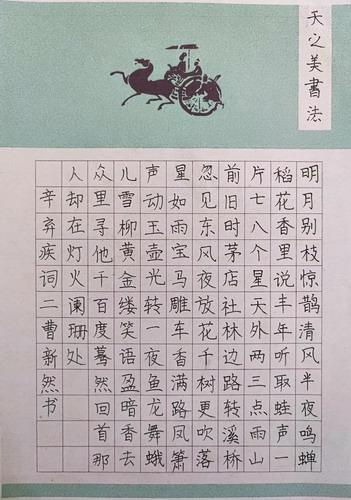 天之美書法
明月别枝惊鹊清风半夜鸣蝉
稻花香里说丰年听取蛙声一
片七八个星天外两三点雨山
前旧时茅店社林边路转溪桥
忽见东风夜放花千树更吹落
星如雨宝马雕车香满路凤箫
声动玉壶光转一夜鱼龙舞蛾
儿雪柳黄金缕笑语盈暗香去
众里寻他千百度蓦然回首那
人却在灯火阑珊处
辛弃疾词二曹新然书